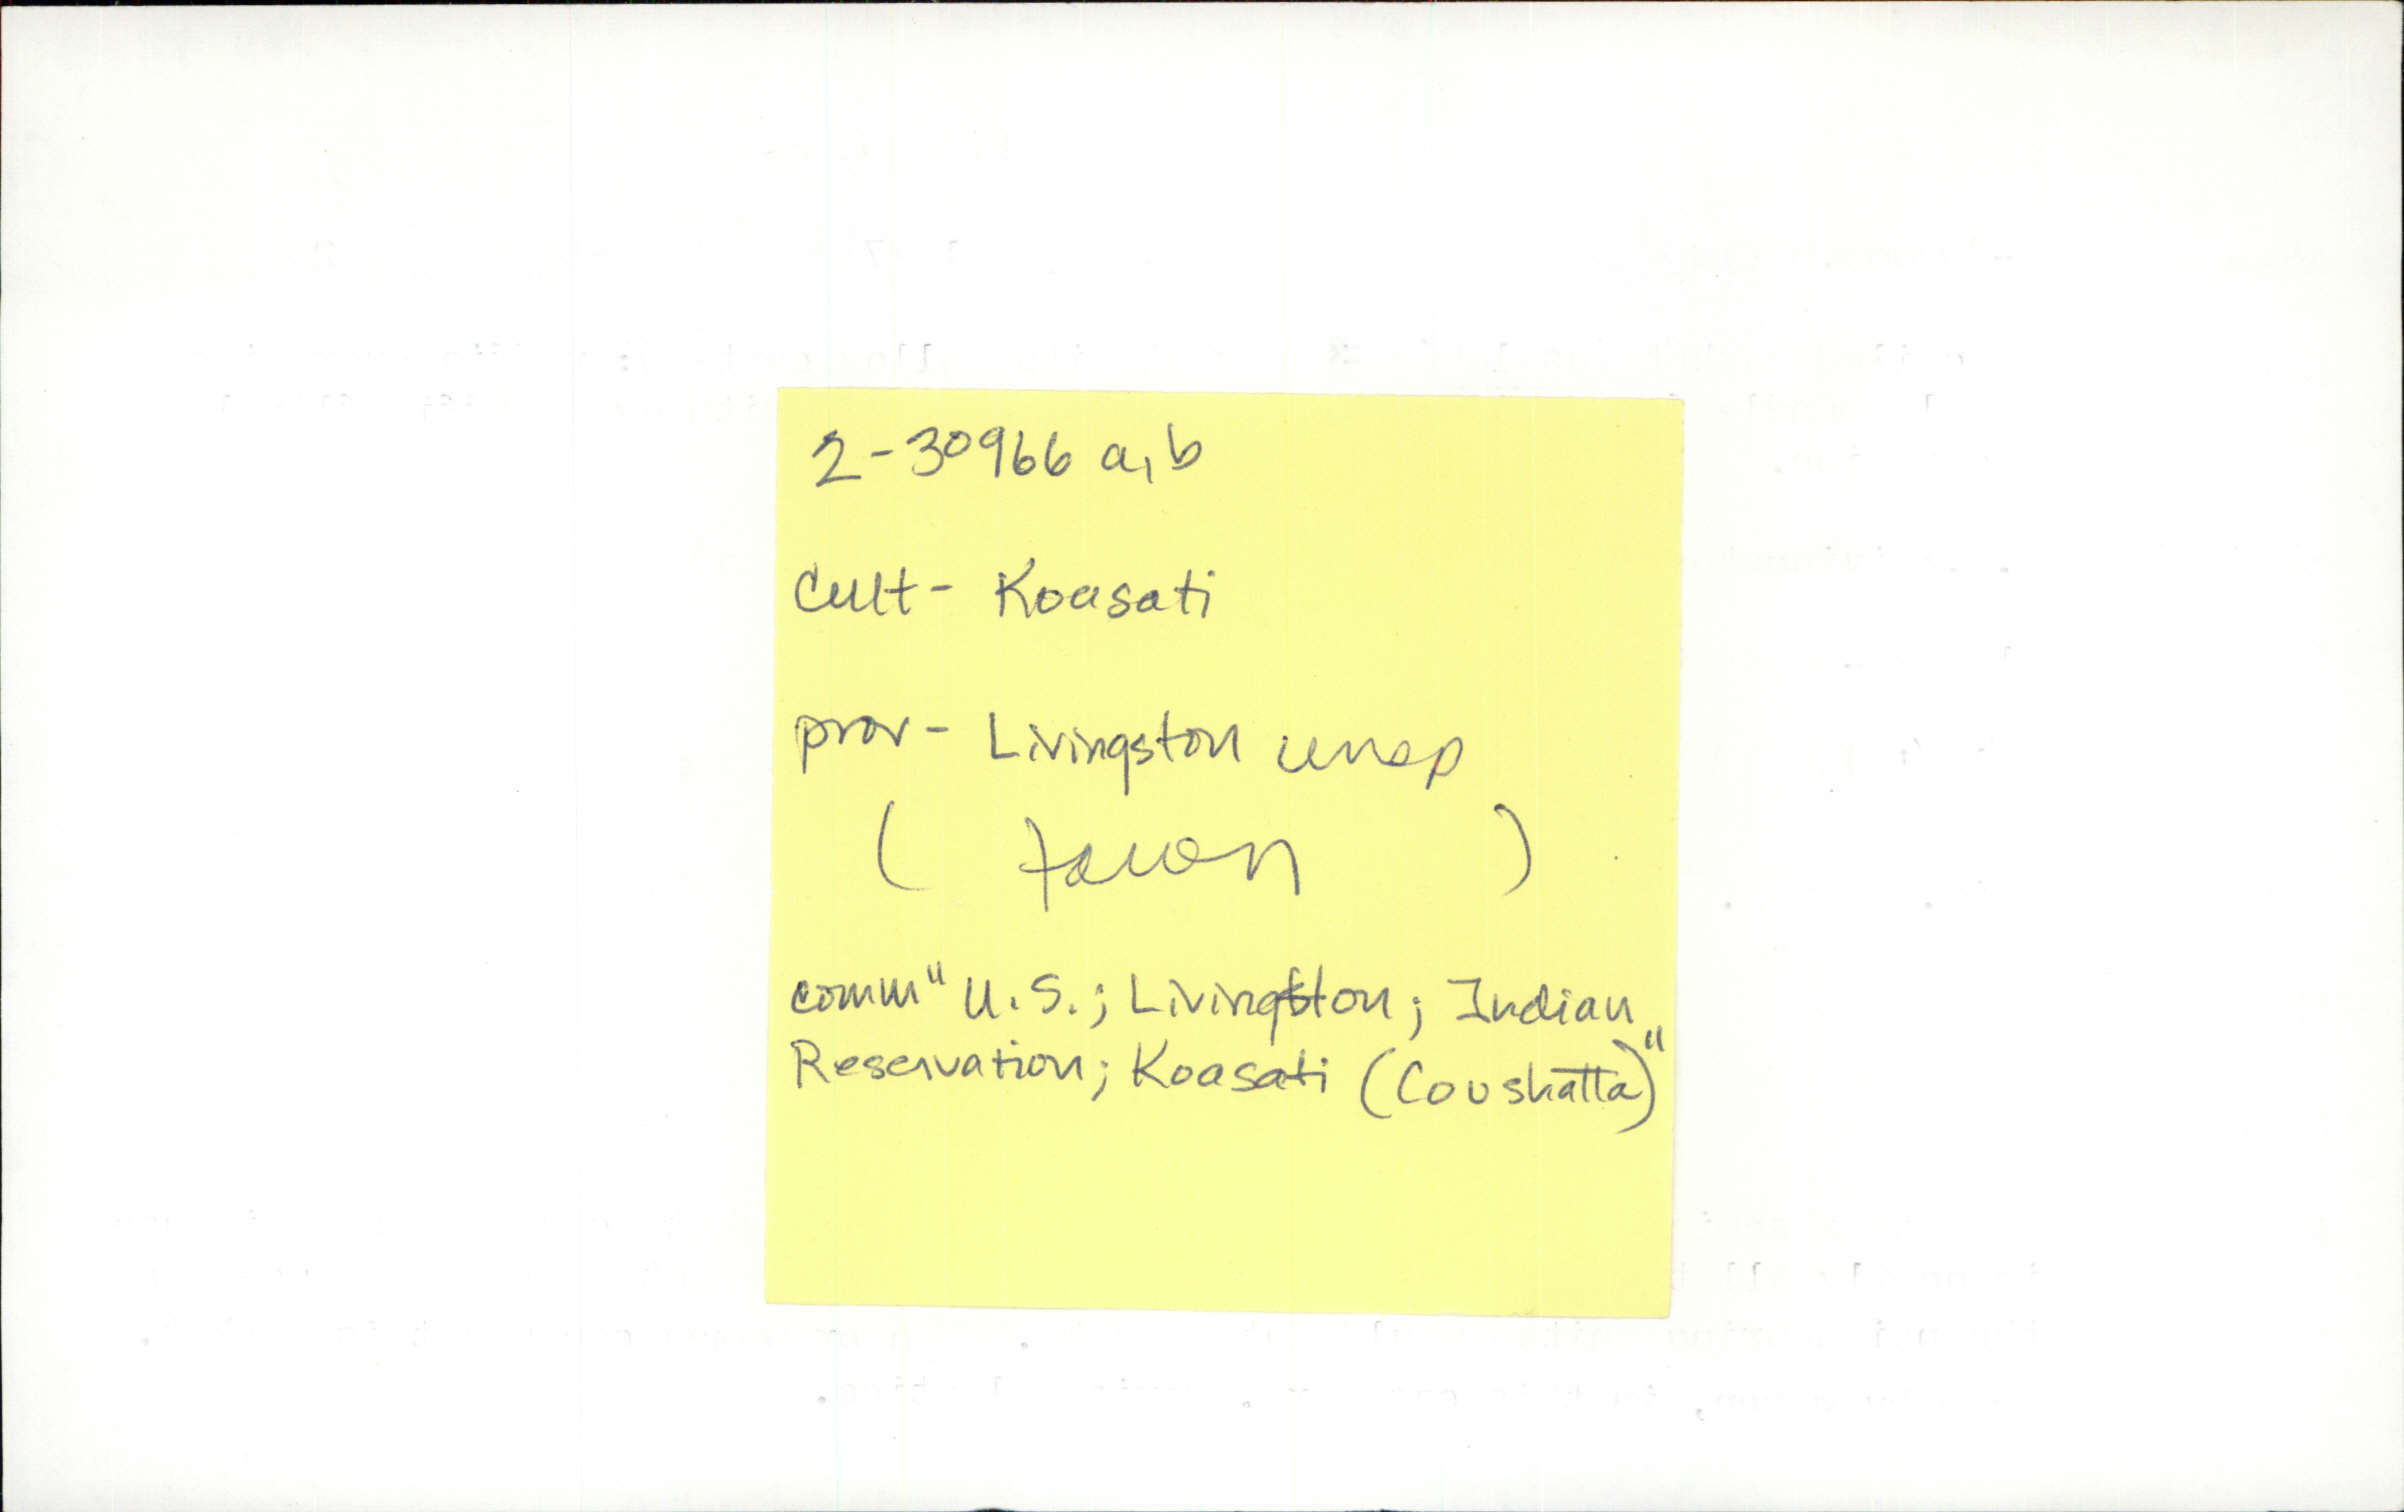 2-30966 a,b
Cult- Koasati
prov- Livingston unsp
( town )
comm "U.S.; Livingston; Indian
Reservation; Koasati (Coushatta)"